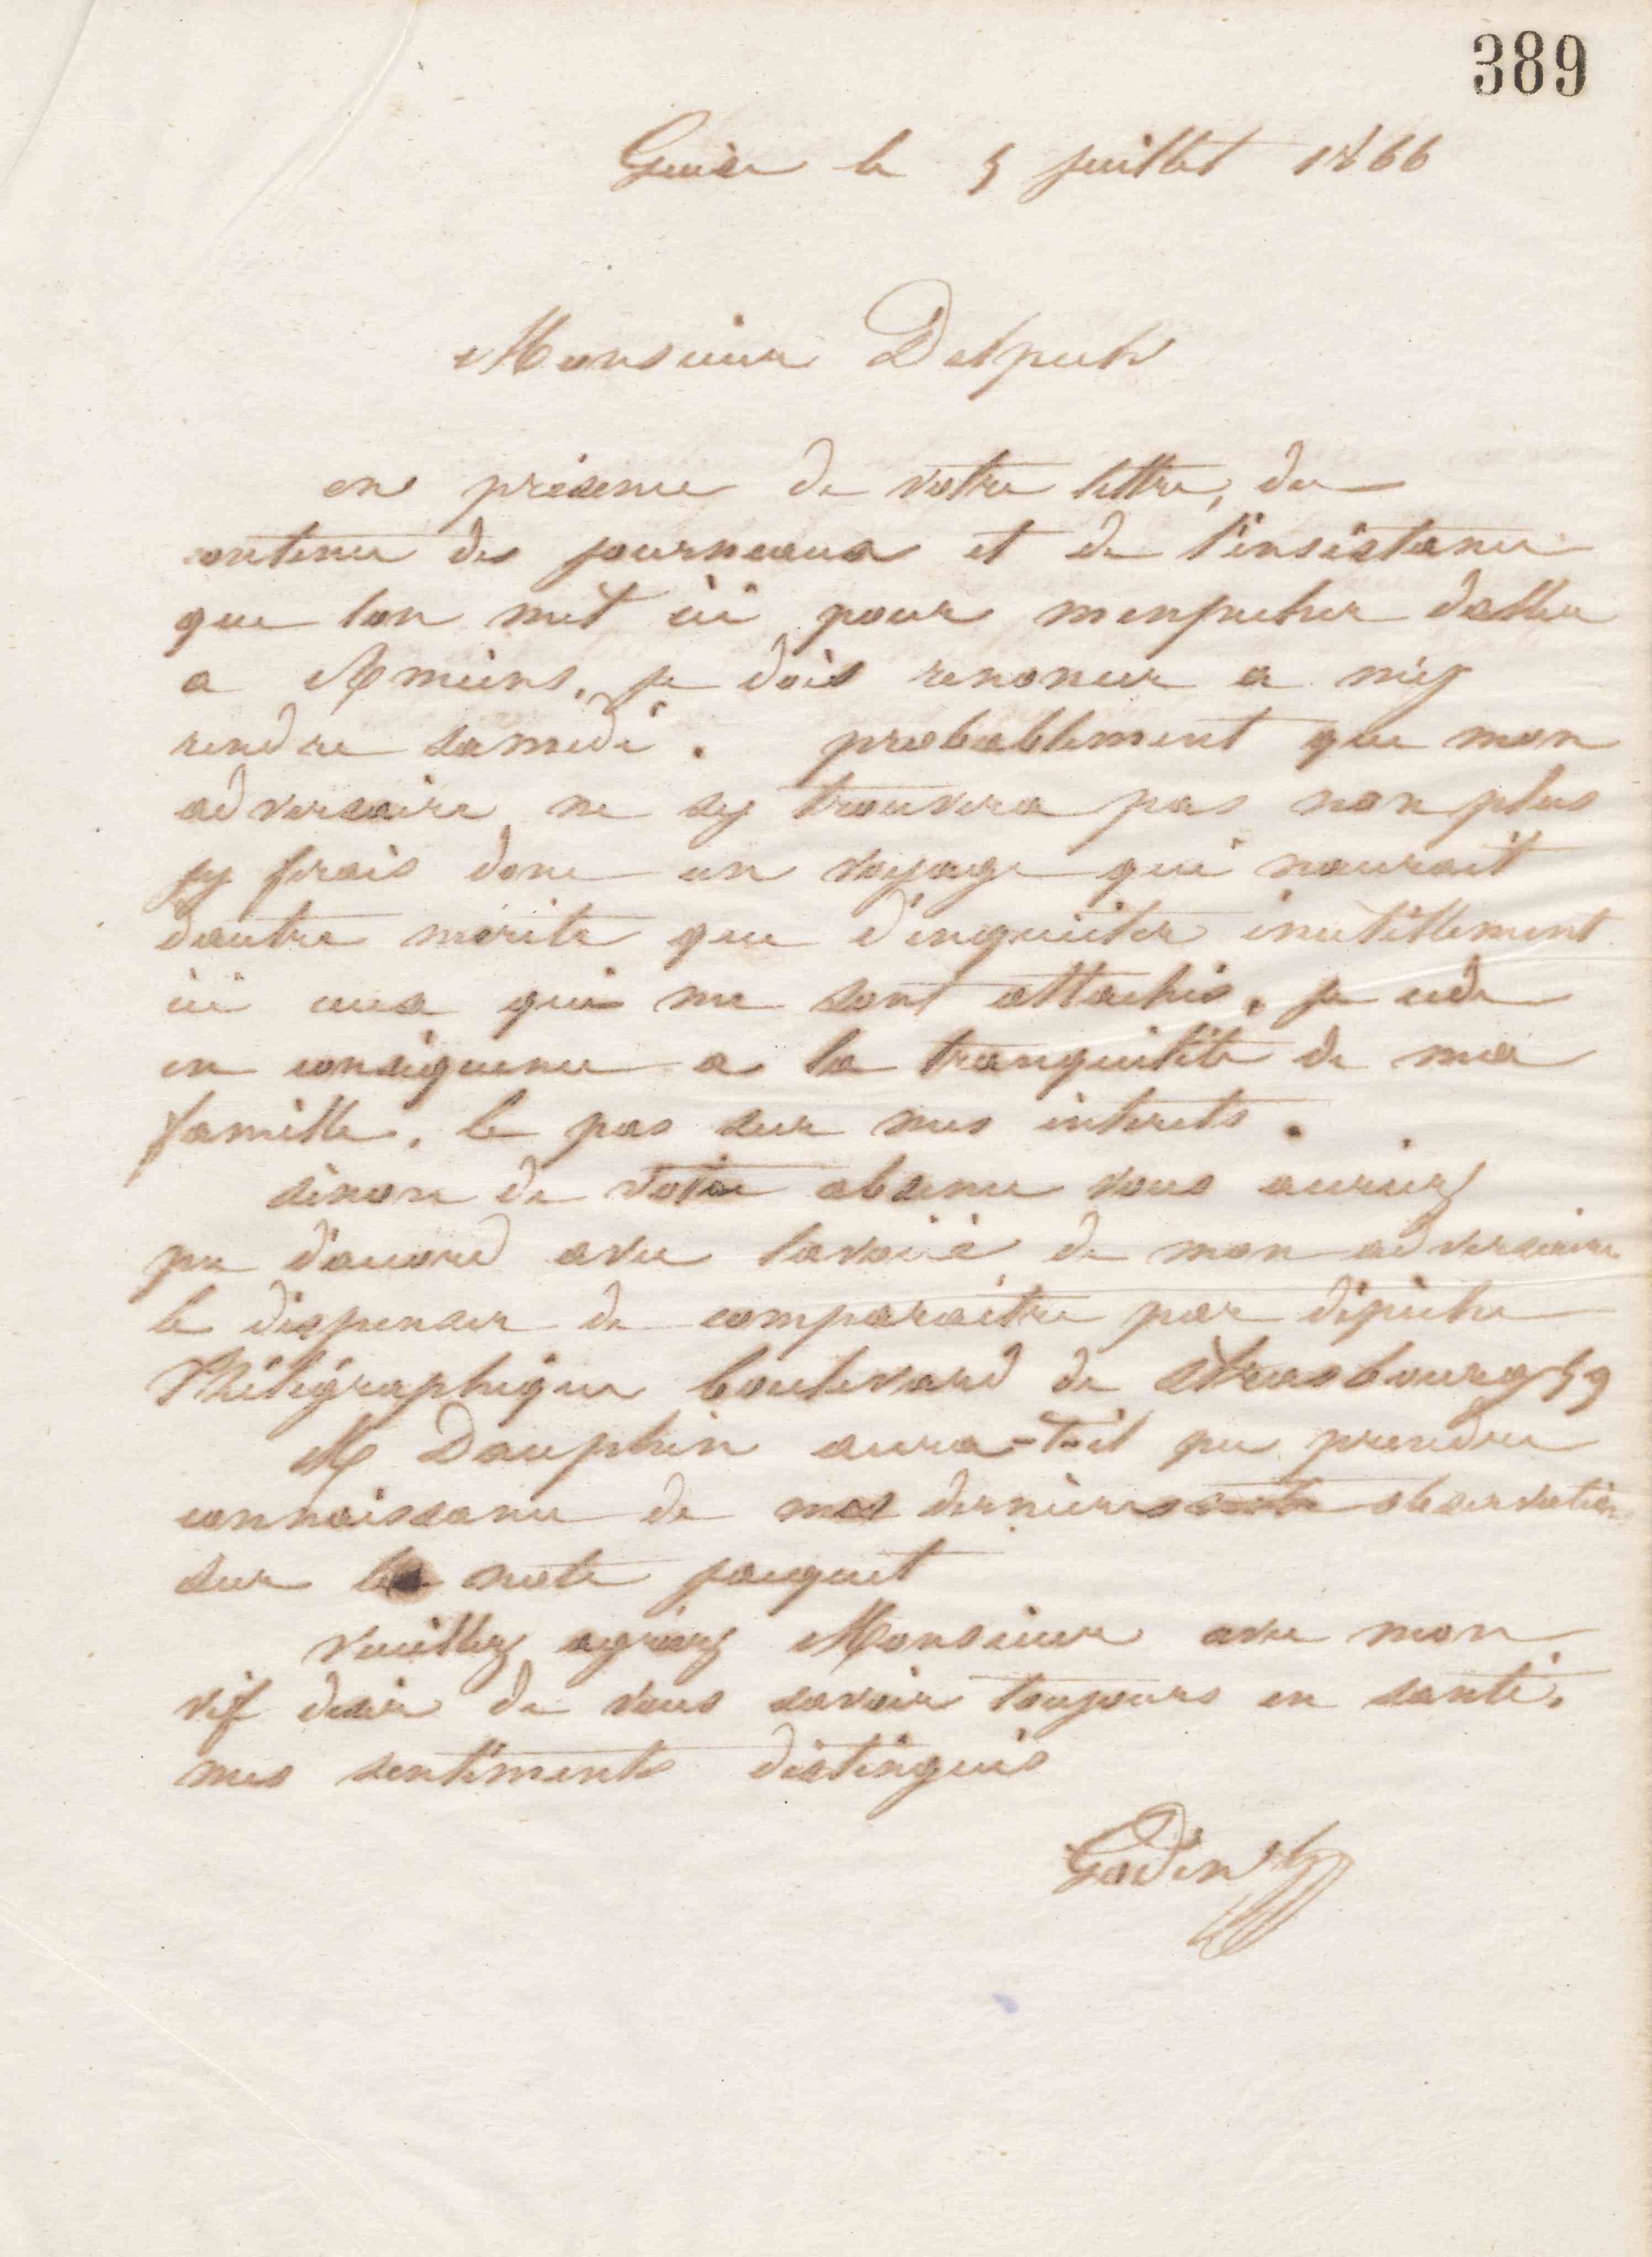 389
Guise le 5 juillet 1866
Monsieur Delpech
en présence de votre lettre, du
contenu des journeaux et de l'insistance
que lon met ici pour menpecher daller
a Amiens, je dois renoncer a m'y
rendre samedi. probablement que mon
adversaire ne sy trouvera pas non plus
jy ferais donc un voyage qui naurait
dautre mérite que d'inquiéter inutillement
ici ceux qui me sont attachés, je cède
en conséquence a la tranquilité de ma
famille, le pas sur mes interets.
sinon de votre absence vous auriez
pu d'accord avec lavoué de mon adversaire
le dispenser de comparaitre par dépèche
Télégraphique boulevard de Strasbourg 59
M Dauphin aura-t-il pu prendre
connaissance de mes dernières observations
sur la note jacquet
veuillez agréez Monsieur avec mon
vif desir de vous savoir toujours en santé,
mes sentiments distingués
Godin